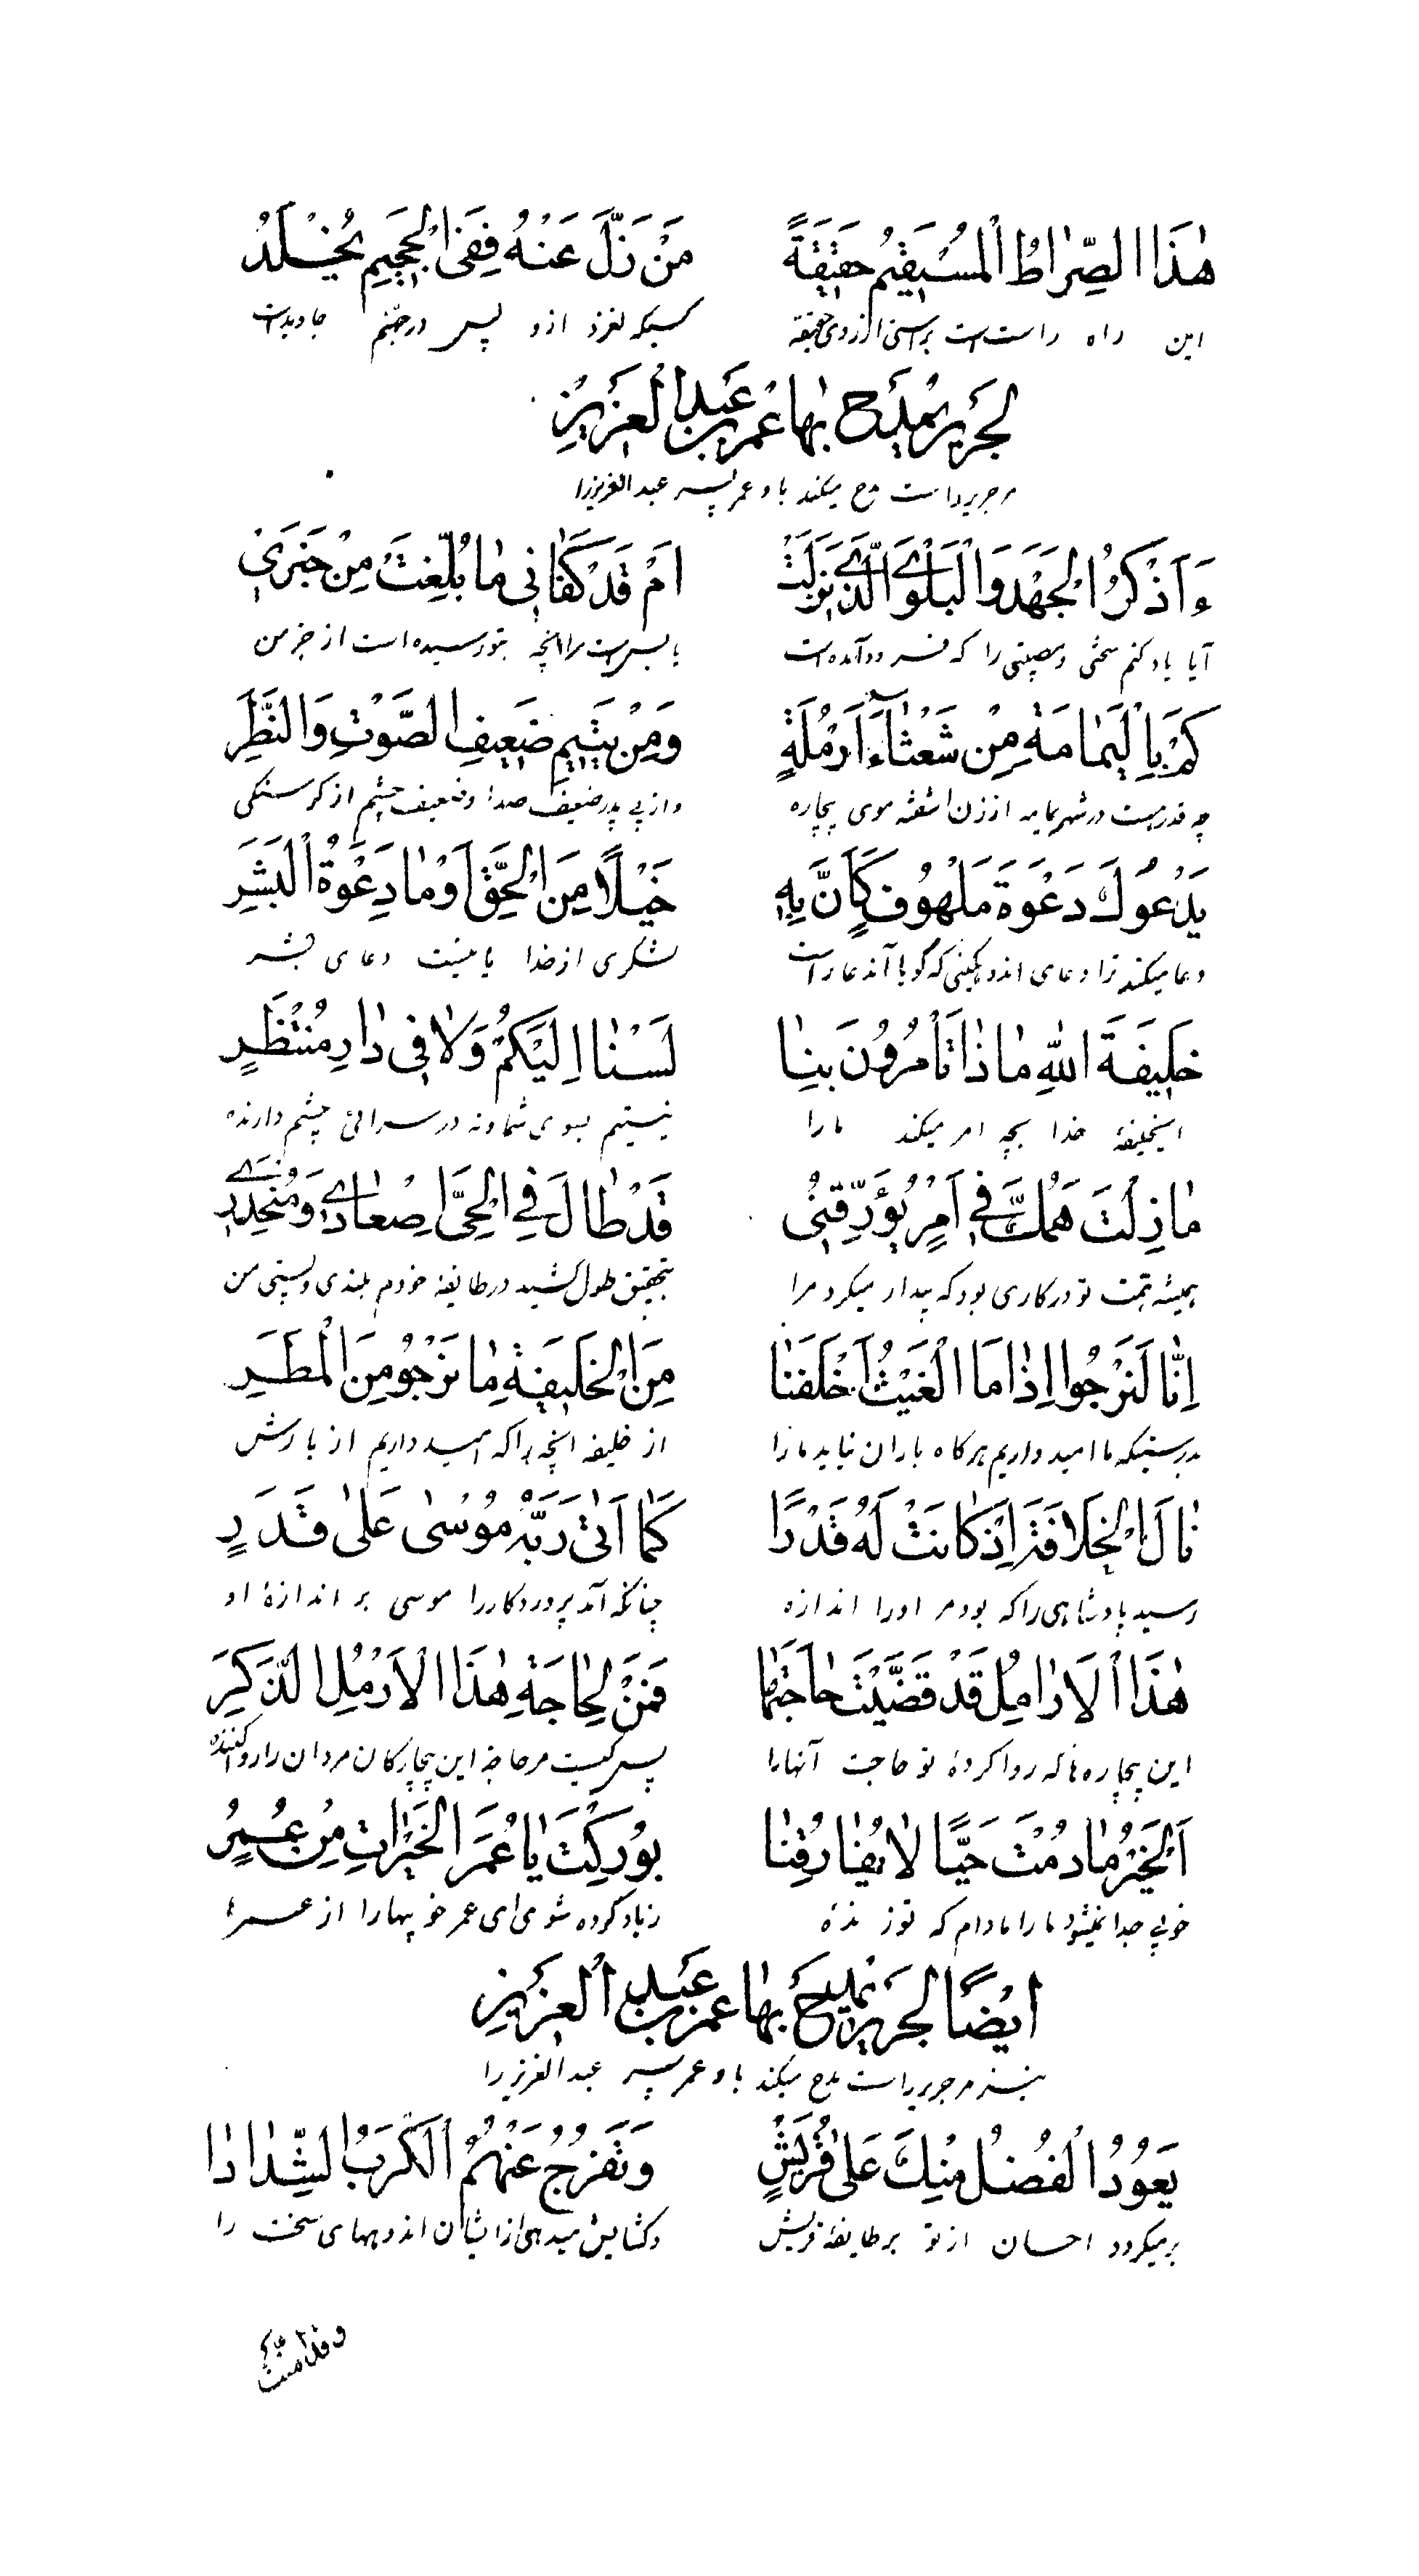 هٰذَا الصِّرٰاطُ الْمُسْتَقيٖمُ حَقيٖقَةً مَنْ زَلَّ عَنْهُ فَفَي الْجَحيٖمِ يُخَلَّدُ
این راه راست است براستی از روی حقیقة کسیکه لغزد ازو پس در جهنّم جاوید است
لجَريٖر يَمْدَحُ بِهٰا عُمَر بن عَبْدِ الْعَزيٖزِ
مر جریر راست مدح میکند باو عمر پسر عبد العزیز را
ءَاَذْكُرُ الْجَهْدَ وَالْبَلْوَي الَّذيٖ نَزَلَتْ اَمْ قَدْ كَفٰانيٖ مٰا بُلِّغْتَ مِنْ خَبَريٖ
آیا یاد کنم سختی و مصیبتی را که فرود آمده است یا بس است مرا آنچه بتو رسیده است از خبر من
كَمْ بِالْيَمٰامَةِ مِنْ شَعْثٰآءَ اَرْمُلَةٍ وَمِنْ يَتيٖمٍ ضَعيٖفِ الصَّوْتِ وَالنَّظَرِ
چه قدر هست در شهر یمامه از زن آشفته موی بیچاره و از بی پدر ضعیف صدا و ضعیف چشم از کرسنکی
يَدْعُوكَ دَعْوَةَ مَلْهُوفٍ كَاَنَّ بِهٖ خَيْلًا مِنَ الْحَقِّ اَوْ مٰا دَعْوَةُ الْبَشَرِ
دعا میکند ترا دعای اندوهکینی که گویا آندعا راست لشکری از خدا یا نیست دعای بشر
خَليٖفَةَ اللهِ مٰاذٰا تَأْمُرُونَ بِنٰا لَسْنٰا اِلَيْكُمْ وَلٰا فيٖ دٰارِ مُنْتَظَرٍ
ایخلیفهٔ خدا بچه امر میکند ما را نیستیم بسوی شما و نه در سرائی چشم دارنده
مٰا زِلْتَ هَمُّكَ فيٖ اَمْرٍ يُؤَرِّقُنيٖ قَدْ طٰالَ فِي الْحَيِّ اِصْعٰاديٖ وَمُنْحَدَريٖ
همیشه همت تو در کاری بود که بیدار میکرد مرا بتحقیق طول کشید در طایفهٔ خودم بلندی و پستی من
اِنّٰا لَنَرْجُوا اِذٰا مَا الْغَيْثُ اَخْلَفَنٰا مِنَ الْخَليٖفَةِ مٰا نَرْجُو مِنَ الْمَطَرِ
بدرستیکه ما امید واریم هر کاه باران نیاید ما را از خلیفه آنچه را که امید داریم از بارش
نٰالَ الْخَلٰافَةَ اِذْ كٰانَتْ لَهُ قَدْرًا كَمٰا اَتٰى رَبَّهُ مُوسٰى عَلٰى قَدَرٍ
رسید پادشاهی را که بود مر او را اندازه چنانکه آمد پروردکار را موسی بر اندازهٔ او
هٰذَا الْاَرٰامِلُ قَدْ قَضَّيْتَ حٰاجَتَهٰا فَمَنْ لِحٰاجَةِ هٰذَا الْاَرْمُلِ الذَّكَرِ
این بیچاره ها که روا کردهٔ تو حاجت آنها را پس کیست مر حاجة این بیچارکان مردان را روا کننده
اَلْخَيْرُ مٰا دُمْتَ حَيًّا لٰا يُفٰارِقُنٰا بُورِكْتَ يٰا عُمَرَ الْخَيْرٰاتِ مِنْ عُمَرٍ
خوبی جدا نمیشود ما را مادام که تو زندهٔ زیاد کرده شوی ای عمر خوبیها را از عمرها
اَيْضًا لِجَريٖر يَمْدَحُ بِهٰا عُمَر بن عَبْدِ الْعَزيٖزِ
نیز مر جریر راست مدح میکند باو عمر پسر عبد العزیز را
يَعُودُ الْفَضْلُ مِنْكَ عَلٰى قُرَيْشٍ وَتَفْرُجُ عَنْهُمُ الْكُرَبَ الشِّدٰادٰا
برمیکردد احسان از تو بر طایفهٔ قریش و کشایش میدهی از ایشان اندوههای سخت را
وقد امنت